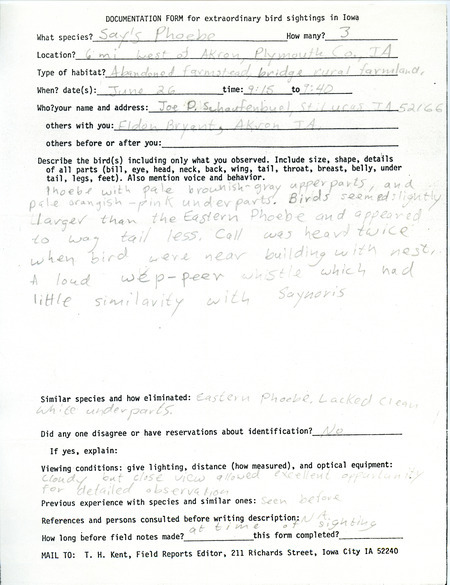 DOCUMENTATION FORM for extraordinary bird sightings in Iowa
What species? Say's Phoebe How many? 3
Location? 6 mi west of Akron, Plymouth Co, IA
Type of habitat? Abandoned farmstead, bridge, rural farmland,
When? date(s): June 26 time: 9:15 to 9:40
Who? your name and address: Joe P. Schaufenbuel, St. Lucas IA 52166
others with you: Eldon Bryant, Akron IA
others before or after you:
Describe the bird(s) including only what you observed. Include size, shape, details
of all parts (bill, eye, head, neck, back, wing, tail, throat, breast, belly, under
tail, legs, feet). Also mention voice and behavior.
Phoebe with pale brownish-gray upperparts, and
pale orangish-pink underparts. Birds seemed slightly
larger than the Eastern Phoebe and appeared
to wag tail less. Call was heard twice
when bird were near building with nest.
A loud wep-peer whistle which had
little similarity with Saynoris
Similar species and how eliminated: Eastern Phoebe. Lacked clean
white underparts.
Did any one disagree or have reservations about identification? No
If yes, explain:
Viewing conditions: give lighting, distance (how measured), and optical equipment:
Cloudy but close view allowed excellent opportunity
for detailed observation
Previous experience with species and similar ones: seen before
References and persons consulted before writing description: NA
at time of sighting
How long before field notes made? this form completed?
MAIL TO: T. H. Kent, Field Reports Editor, 211 Richards Street, Iowa City IA 52240